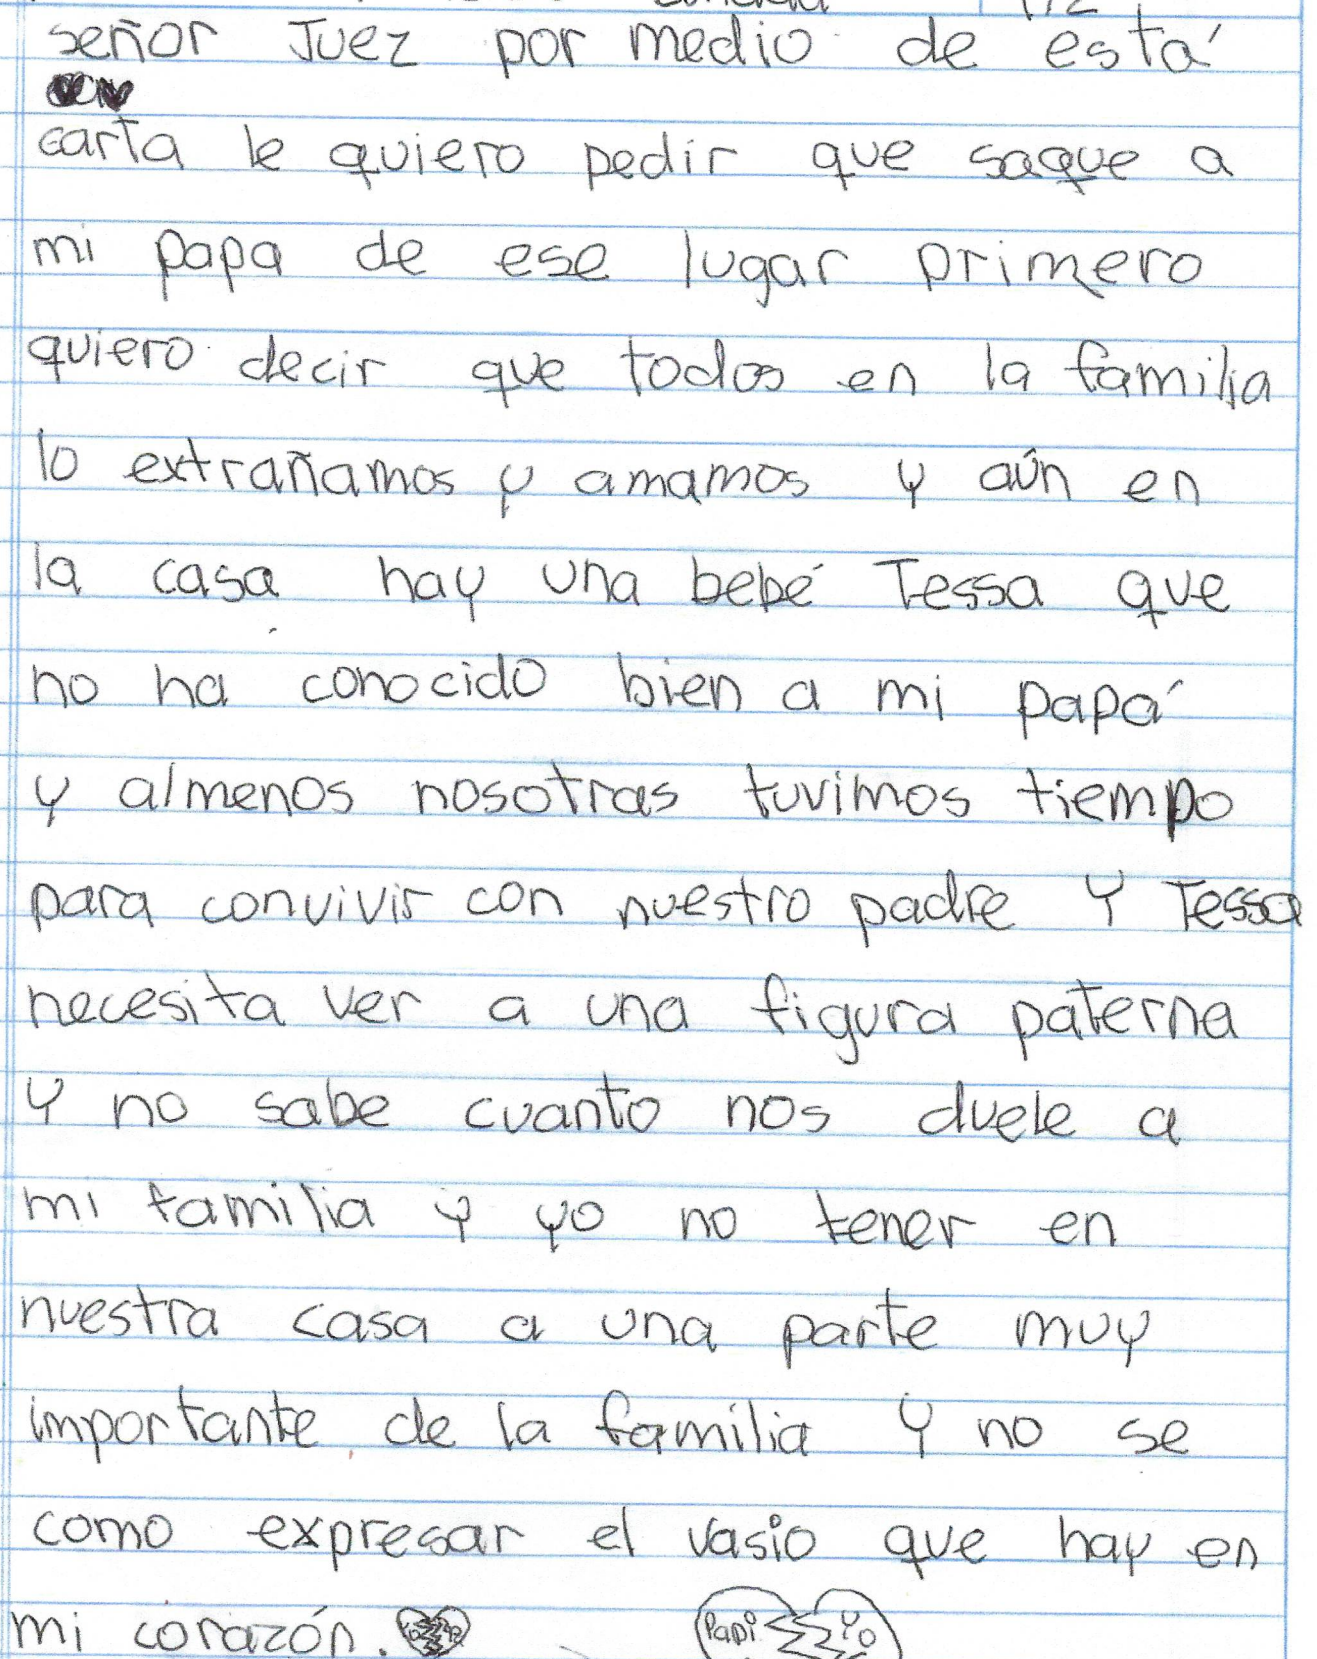 señor Juez por medio de está
carta le quiero pedir que saque a
mi papa de ese lugar primero
quiero decir que todos en la familia
lo extrañamos y amamos y aún en
la casa hay una bebé Tessa que
no ha conocido bien a mi papá
y almenos nosotras tuvimos tiempo
para convivir con nuestro padre Y Tessa
necesita ver a una figura paterna
Y no sabe cuanto nos duele a
mi familia y yo no tener en
nuestra casa a una parte muy
importante de la familia Y no se
como expresar el vasio que hay en
mi corazón.
Papi Yo